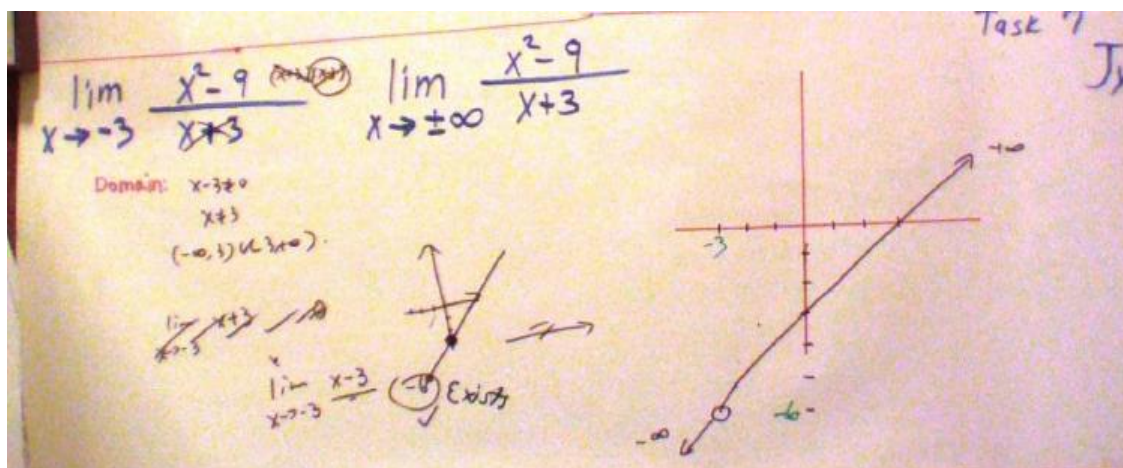 Task 7
lim x→-3 x²-9 / x+3 (x+3)(x-3)
lim x→±∞ x²-9 / x+3
Domain: x-3≠0
x≠3
(-∞,3)∪(3,+∞).
lim x→-3 x+3
lim x→-3 x-3 -6 Exists
+∞
-3
-6
-∞